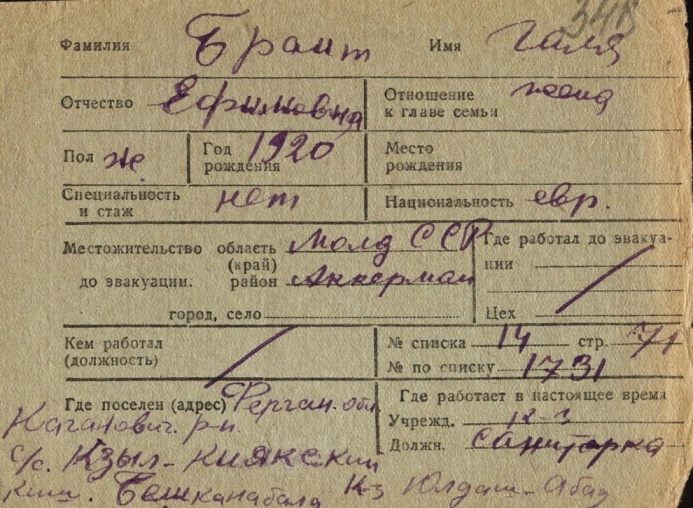 34в
Фамилия Браит Имя Галя
Отчество Ефимовна Отношение к главе семьи жена
Пол ж. Год рождения 1920 Место рождения
Специальность и стаж нет Национальность евр.
Местожительство до эвакуации. область (край) Молд ССР Где работал до эвакуации
район Аккерман
город, село Цех
Кем работал (должность) № списка 14 стр. 71
№ по списку 1731
Где поселен (адрес) Ферган. обл Где работает в настоящее время
Каганович. р-н. Учрежд. к-з
с/с. Кзыл-Киякский Должн. санитарка
киш. Бешканабада к-з Юлдаш-Абад